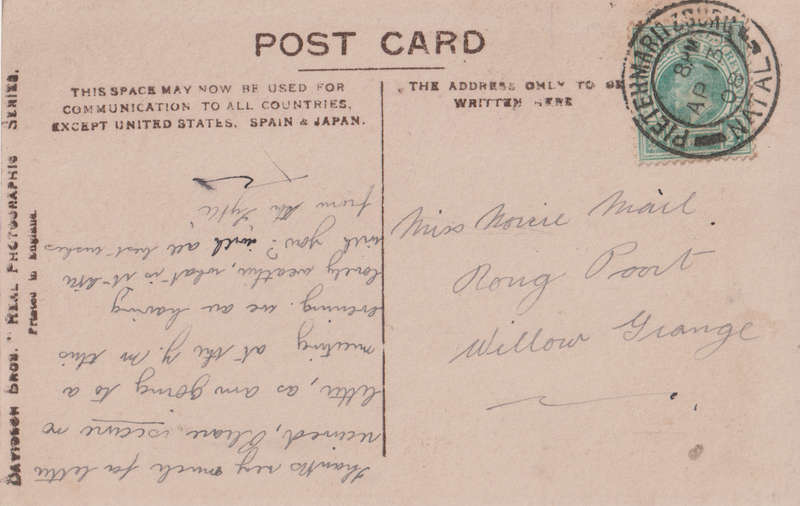 POST CARD
THIS SPACE MAY NOW BE USED FOR
COMMUNICATION TO ALL COUNTRIES,
EXCEPT UNITED STATES, SPAIN & JAPAN.
THE ADDRESS ONLY TO BE
WRITTEN HERE
PIETERMARITZBURG
NATAL
8 AM
AP
DAVIDSON BROS. "REAL PHOTOGRAPHIC SERIES.
Printed in England.
Miss Mail
Poort
Willow Grange
thanks very much for letter
received, Please no
letter, as am going to a
meeting at the Y. M this
evening. we are having
lovely weather, what is it like
with you? with all best wishes
from